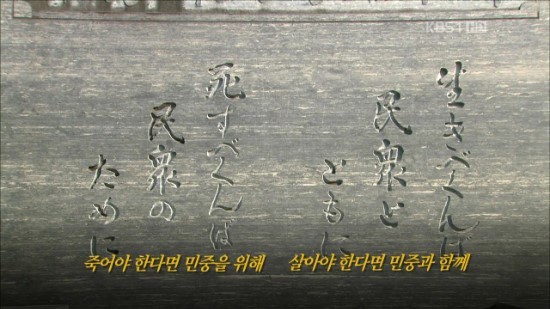 KBS1 HD
生きべくんば
民衆と
ともに
死すべくんば
民衆の
ために
죽어야 한다면 민중을 위해 살아야 한다면 민중과 함께